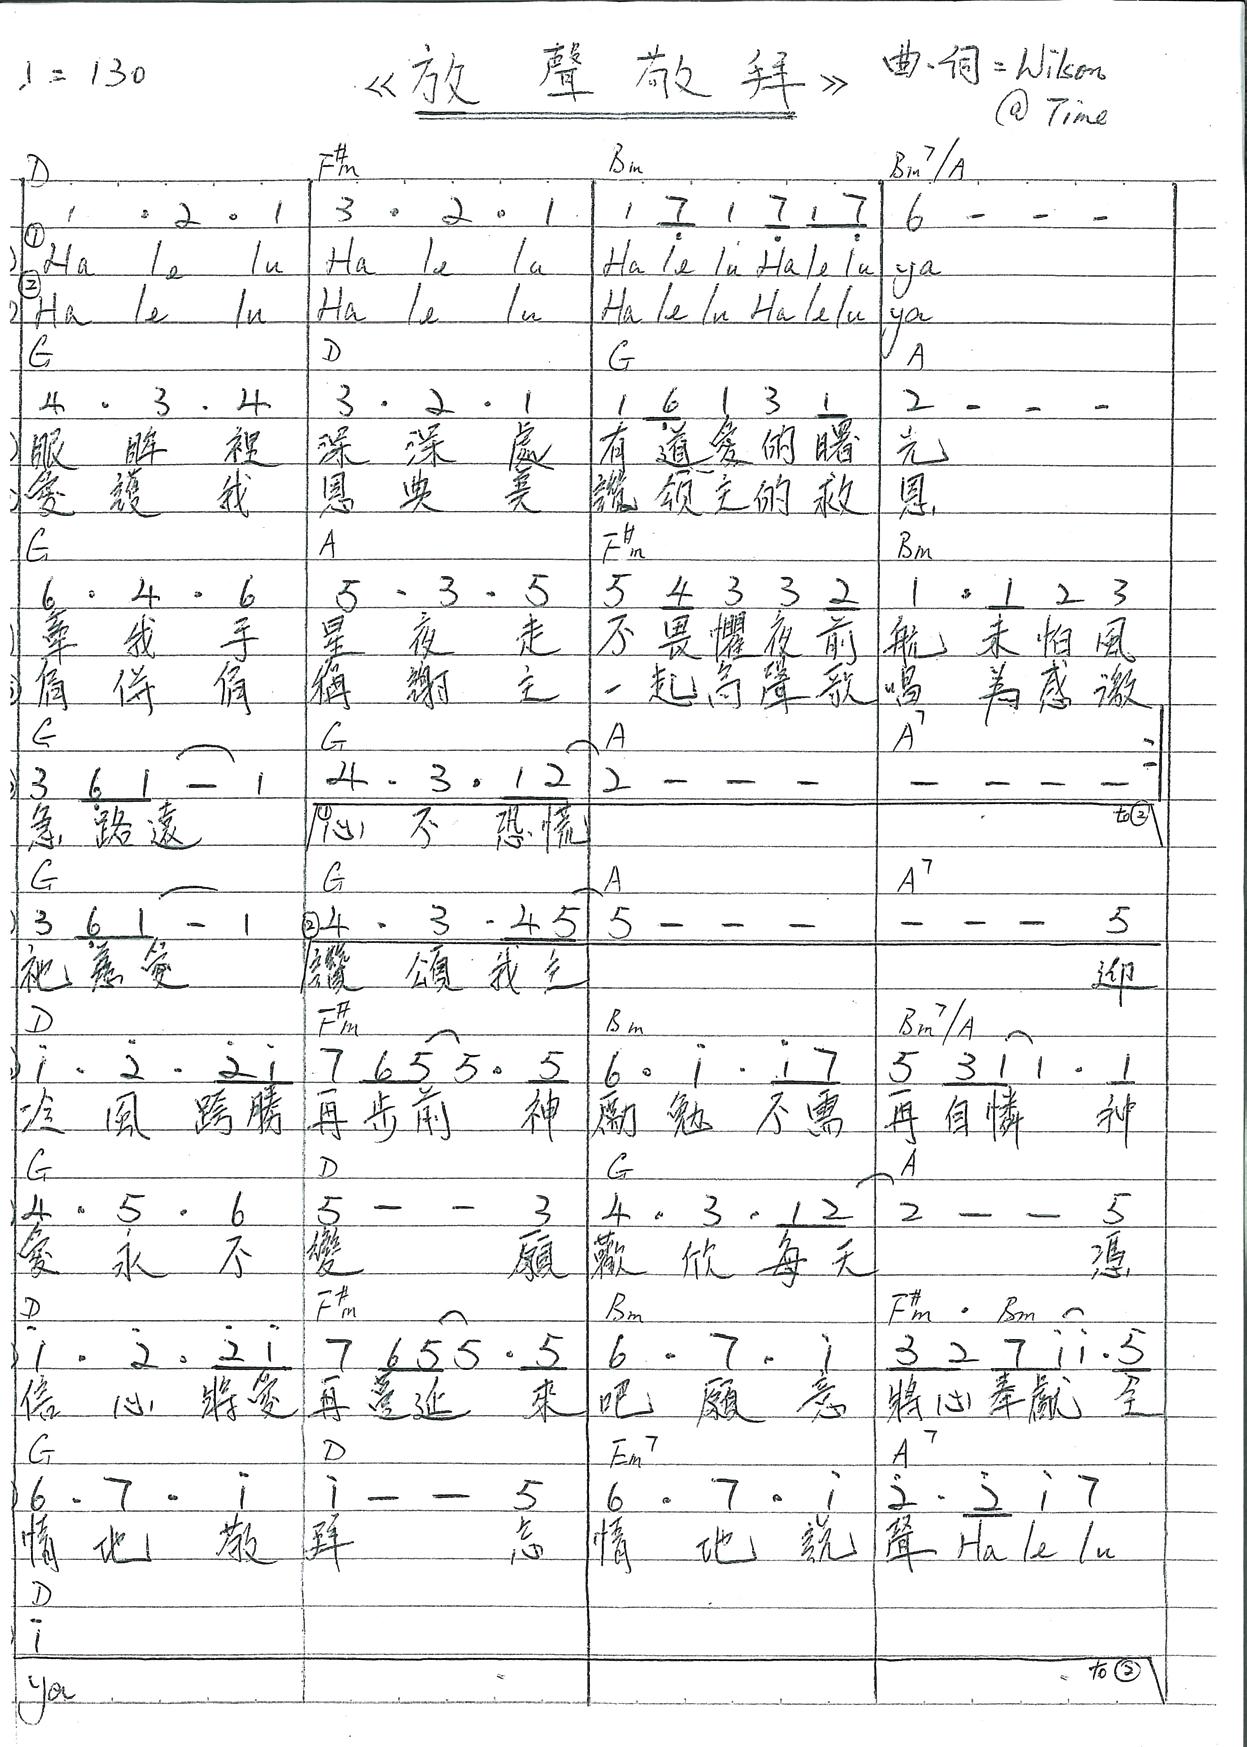 ♩= 130 《放聲敬拜》 曲.詞 = Wilson
@ Time
D F#m Bm Bm7/A
1 . 2 . 1 3 . 2 . 1 1 7 1 7 1 7 6 - - -
① Ha le lu Ha le lu Ha le lu Ha le lu ya
② Ha le lu Ha le lu Ha le lu Ha le lu ya
G D G A
4 . 3 . 4 3 . 2 . 1 1 6 1 3 1 2 - - -
眼眸裡 深深處 有道愛的曙 光
愛護我 恩典美 讚頌主的救 恩
G A F#m Bm
6 . 4 . 6 5 . 3 . 5 5 4 3 3 2 1 . 1 2 3
牽我手 星夜走 不畏懼夜前 航 未怕風
肩併肩 稱謝主 一起高聲歌 唱 為感激
G G A A7
3 6 1 - 1 4 . 3 . 1 2 2 - - - - - - -
急路遠 ① 心不恐慌 to②
G G A A7
3 6 1 - 1 ② 4 . 3 . 4 5 5 - - - - - - 5
祂慈愛 讚頌我主 迎
D F#m Bm Bm7/A
i . 2 . 2 i 7 6 5 5 . 5 6 . i . i 7 5 3 1 1 . 1
冷風跨勝 再步前 神 勵勉不需 再自憐 神
G D G A
4 . 5 . 6 5 - - 3 4 . 3 . 1 2 2 - - 5
愛永不 變 願 歡欣每天 憑
D F#m Bm F#m . Bm
i . 2 . 2 i 7 6 5 5 . 5 6 . 7 . i 3 2 7 i i . 5
信心將愛 再蔓延 來 吧願意 將心奉獻 全
G D Em7 A7
6 . 7 . i i - - 5 6 . 7 . i 2 . 2 i 7
情地敬 拜 忘 情地說 聲 Ha le lu
D
i
ya to②